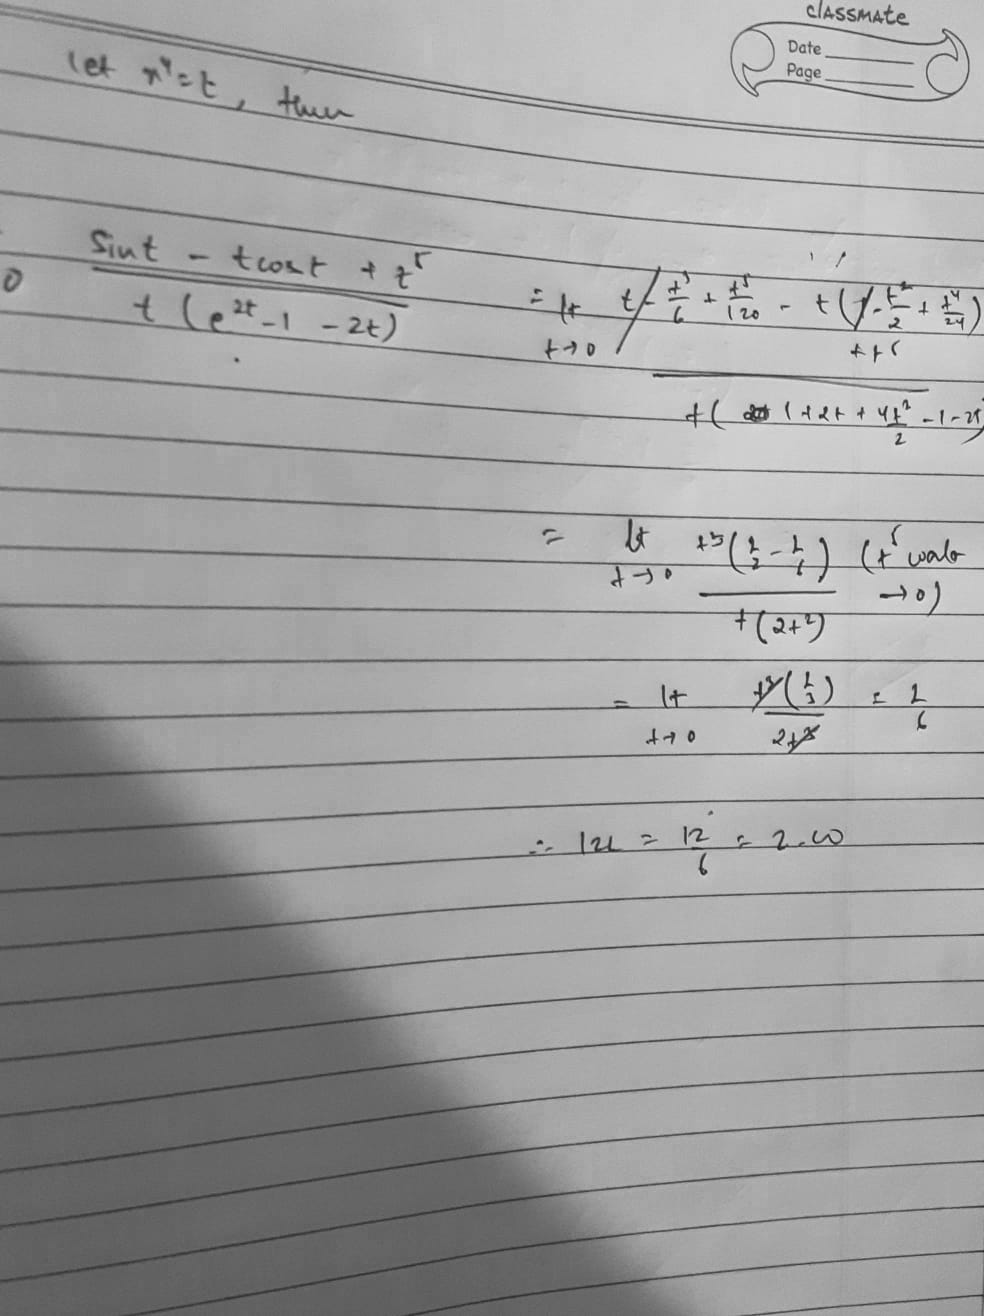 classmate
Date
Page
let x⁴ = t, then
0 (sint - tcost + t⁵) / (t(e²ᵗ - 1 - 2t)) = lt t→0 (t - t³/6 + t⁵/120 - t(1 - t²/2 + t⁴/24) + t⁵) / (t(1 + 2t + 4t²/2 - 1 - 2t)
= lt t→0 t³(1/2 - 1/6) / (t(2t²)) (t⁵ wale → 0)
= lt t→0 t³(1/3) / 2t³ = 1/6
∴ 12L = 12/6 = 2.00